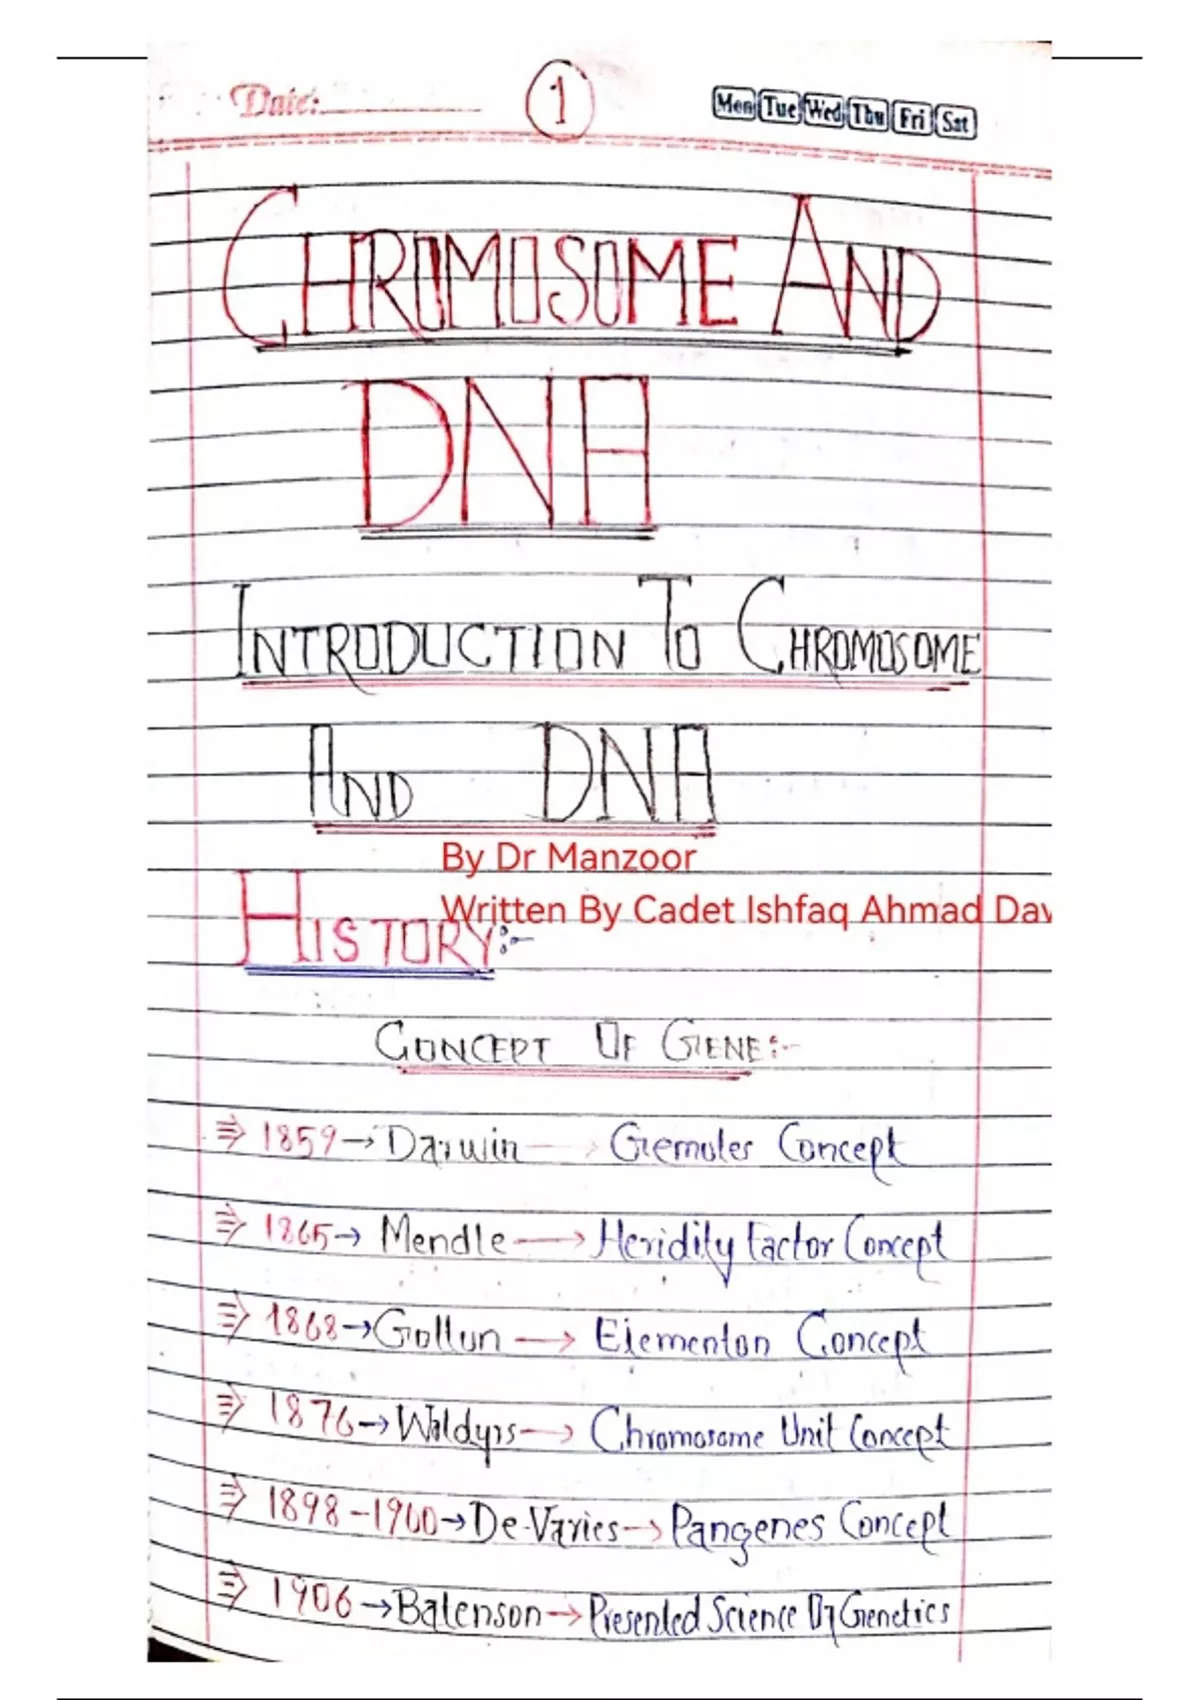 Date:
1
Mon Tue Wed Thu Fri Sat
CHROMOSOME AND
DNA
INTRODUCTION TO CHROMOSOME
AND DNA
By Dr Manzoor
Written By Cadet Ishfaq Ahmad Daw
HISTORY:-
CONCEPT OF GENE:-
⇒ 1859→Darwin → Gemules Concept
⇒ 1865→ Mendle → Heridity factor Concept
⇒ 1868→Gollun → Elementon Concept
⇒ 1876→Waldyrs→ Chromosome Unit Concept
⇒ 1898-1900→De-Varies→ Pangenes Concept
⇒ 1906→Batenson→ Presented Science Of Genetics